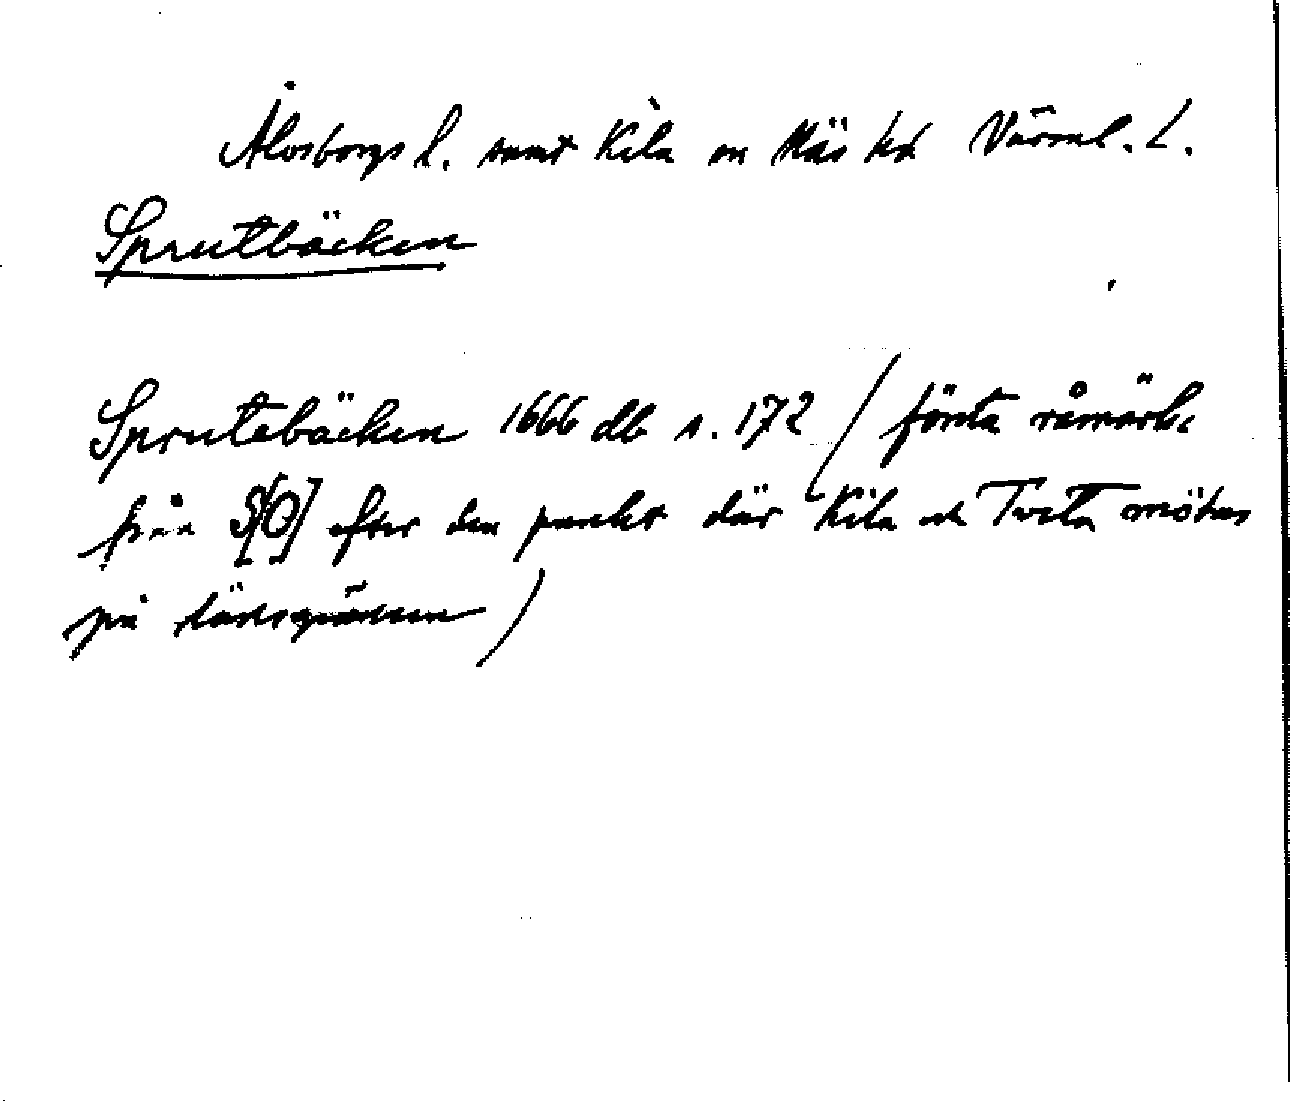 Älvsborgs l. samt Kila sn Näs hd Värml. L.
Sprutbäcken
Sprutebäcken 1666 db s. 172 (första råmärke
från S[O] efter den punkt där Kila och Tveta mötas
på länsgränsen)